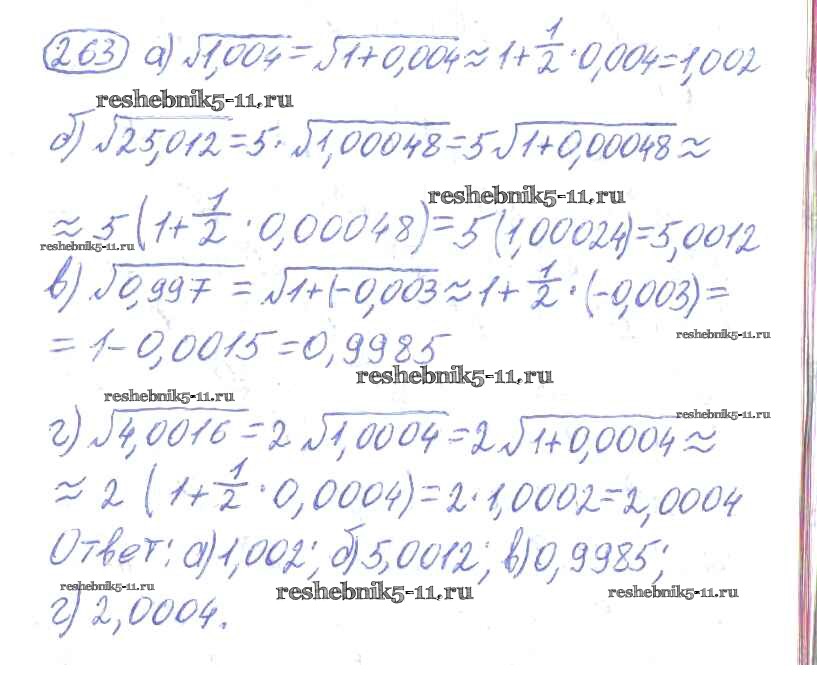 263 а) √1,004 = √1+0,004 ≈ 1+1/2·0,004=1,002
reshebnik5-11.ru
б) √25,012 = 5·√1,00048=5√1+0,00048 ≈
reshebnik5-11.ru
≈ 5(1+1/2·0,00048)=5(1,00024)=5,0012
reshebnik5-11.ru
в) √0,997 = √1+(-0,003 ≈ 1+1/2·(-0,003)=
= 1-0,0015=0,9985
reshebnik5-11.ru
reshebnik5-11.ru
reshebnik5-11.ru
г) √4,0016=2√1,0004=2√1+0,0004 ≈
reshebnik5-11.ru
≈ 2(1+1/2·0,0004)=2·1,0002=2,0004
Ответ: а)1,002; б)5,0012; в)0,9985;
reshebnik5-11.ru
reshebnik5-11.ru
reshebnik5-11.ru
г) 2,0004.